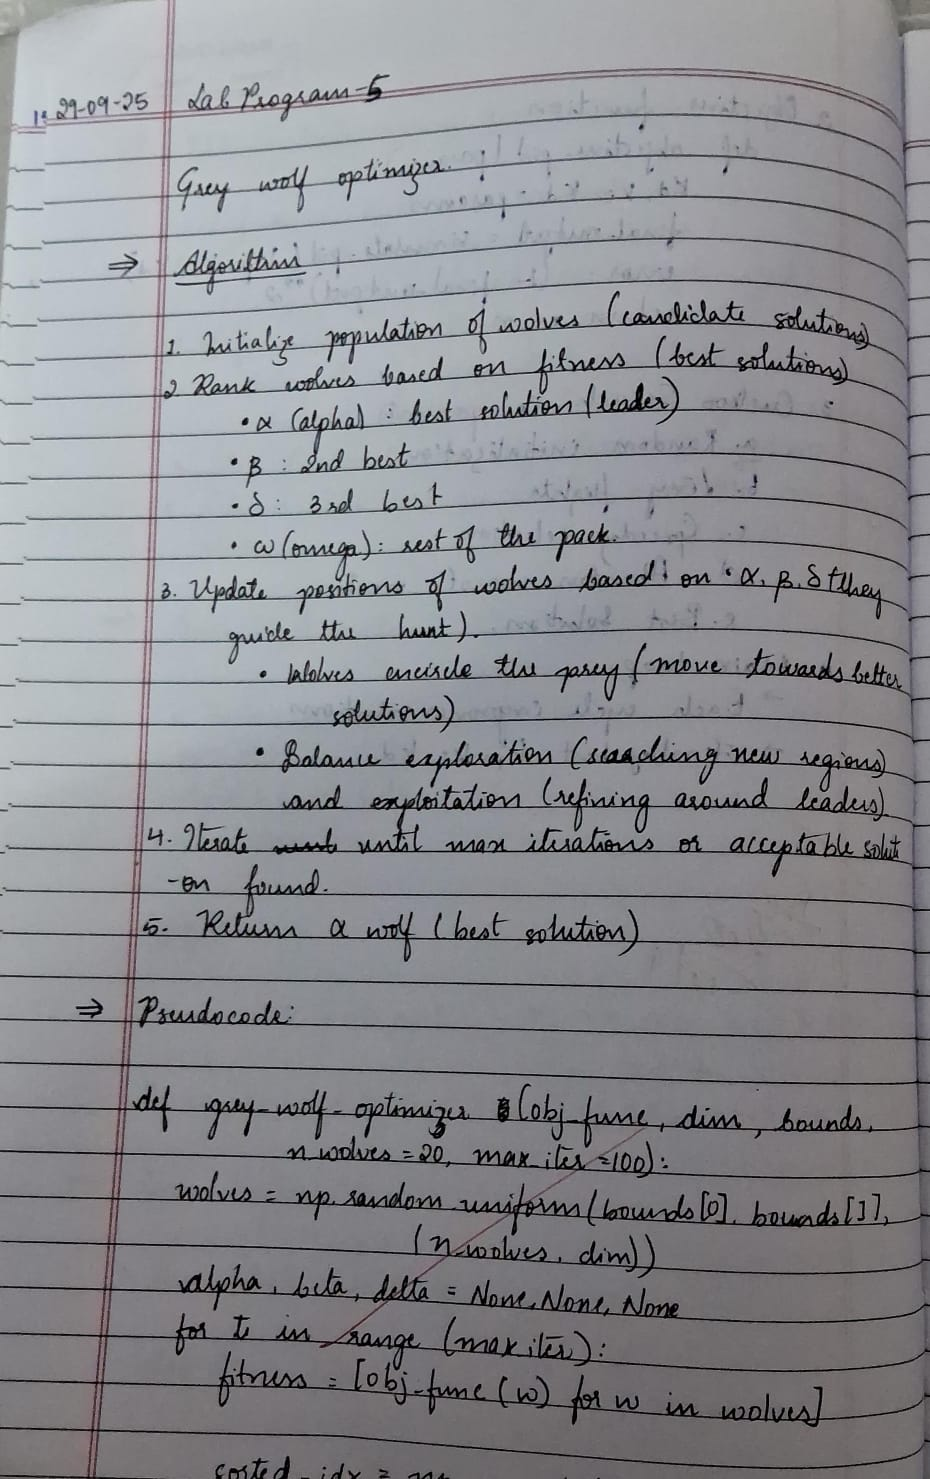 29-09-25 Lab Program-5
Grey wolf optimizer.
⇒ Algorithm
1. Initialize population of wolves (candidate solutions)
2 Rank wolves based on fitness (best solutions)
• α (alpha) : best solution (leader)
• β : 2nd best
• δ : 3rd best
• ω (omega) : rest of the pack.
3. Update positions of wolves based on α, β, δ (they
guide the hunt).
• Wolves encircle the prey (move towards better
solutions)
• Balance exploration (searching new regions)
and exploitation (refining around leaders)
4. Iterate until max iterations or acceptable soluti
-on found.
5. Return α wolf (best solution)
⇒ Pseudocode:
def grey-wolf-optimizer (obj-func, dim, bounds,
n_wolves = 20, max_iter = 100):
wolves = np.random.uniform(bounds[0], bounds[1],
(n_wolves, dim))
alpha, beta, delta = None, None, None
for t in range (max iter):
fitness = [obj-func (w) for w in wolves]
sorted_idx =